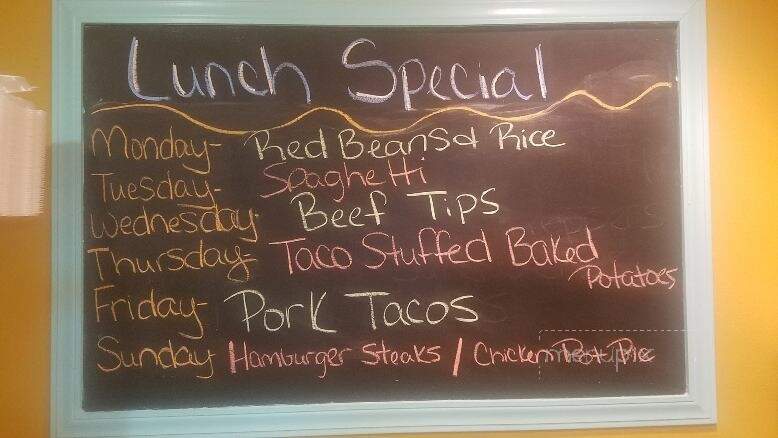 Lunch Special
Monday- Red Beans & Rice
Tuesday- Spaghetti
Wednesday- Beef Tips
Thursday- Taco Stuffed Baked
Potatoes
Friday- Pork Tacos
Sunday Hamburger Steaks / Chicken Pot Pie